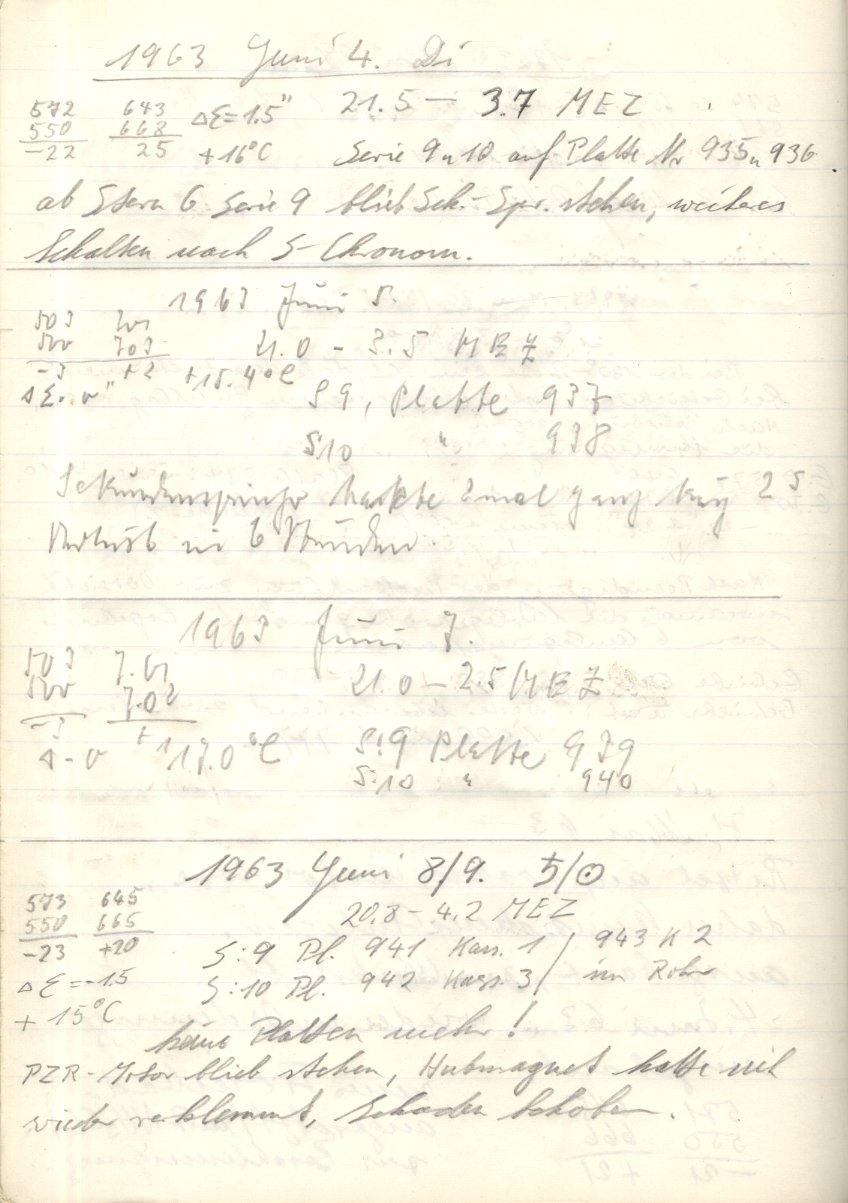 1963 Juni 4. Di
572 643 Δℰ=1.5" 21.5 — 3.7 MEZ
550 668
-22 25 +16°C Serie 9 u 10 auf Platte Nr 935 u 936.
ab Stern 6 Serie 9 blieb Sek.-Spr. stehen, weiteres
Schalten nach S-Chronom.
1963 Juni 5.
503 701
500 703 21.0 - 3.5 MEZ
-3 +2 +15.4°C
Δℰ. 0" S 9, Platte 937
S:10 " 938
Sekundenspringer hakte 2mal ganz kurz 2 s
Verlust in 6 Stunden.
1963 Juni 7.
503 7.01
500 7.02 21.0 — 2.5 MEZ
-3 +1
Δ - 0 17.0°C S:9 Platte 939
S:10 " 940
1963 Juni 8/9. ♄/☉
573 645
550 665 20.8 - 4.2 MEZ
-23 +20 S:9 Pl. 941 Kass. 1 / 943 K 2
Δℰ=-1.5 S:10 Pl. 942 Kass. 3 / im Rohr
+ 15°C
keine Platten mehr!
PZR-Motor blieb stehen, Hubmagnet hatte sich
wieder verklemmt, Schaden behoben.